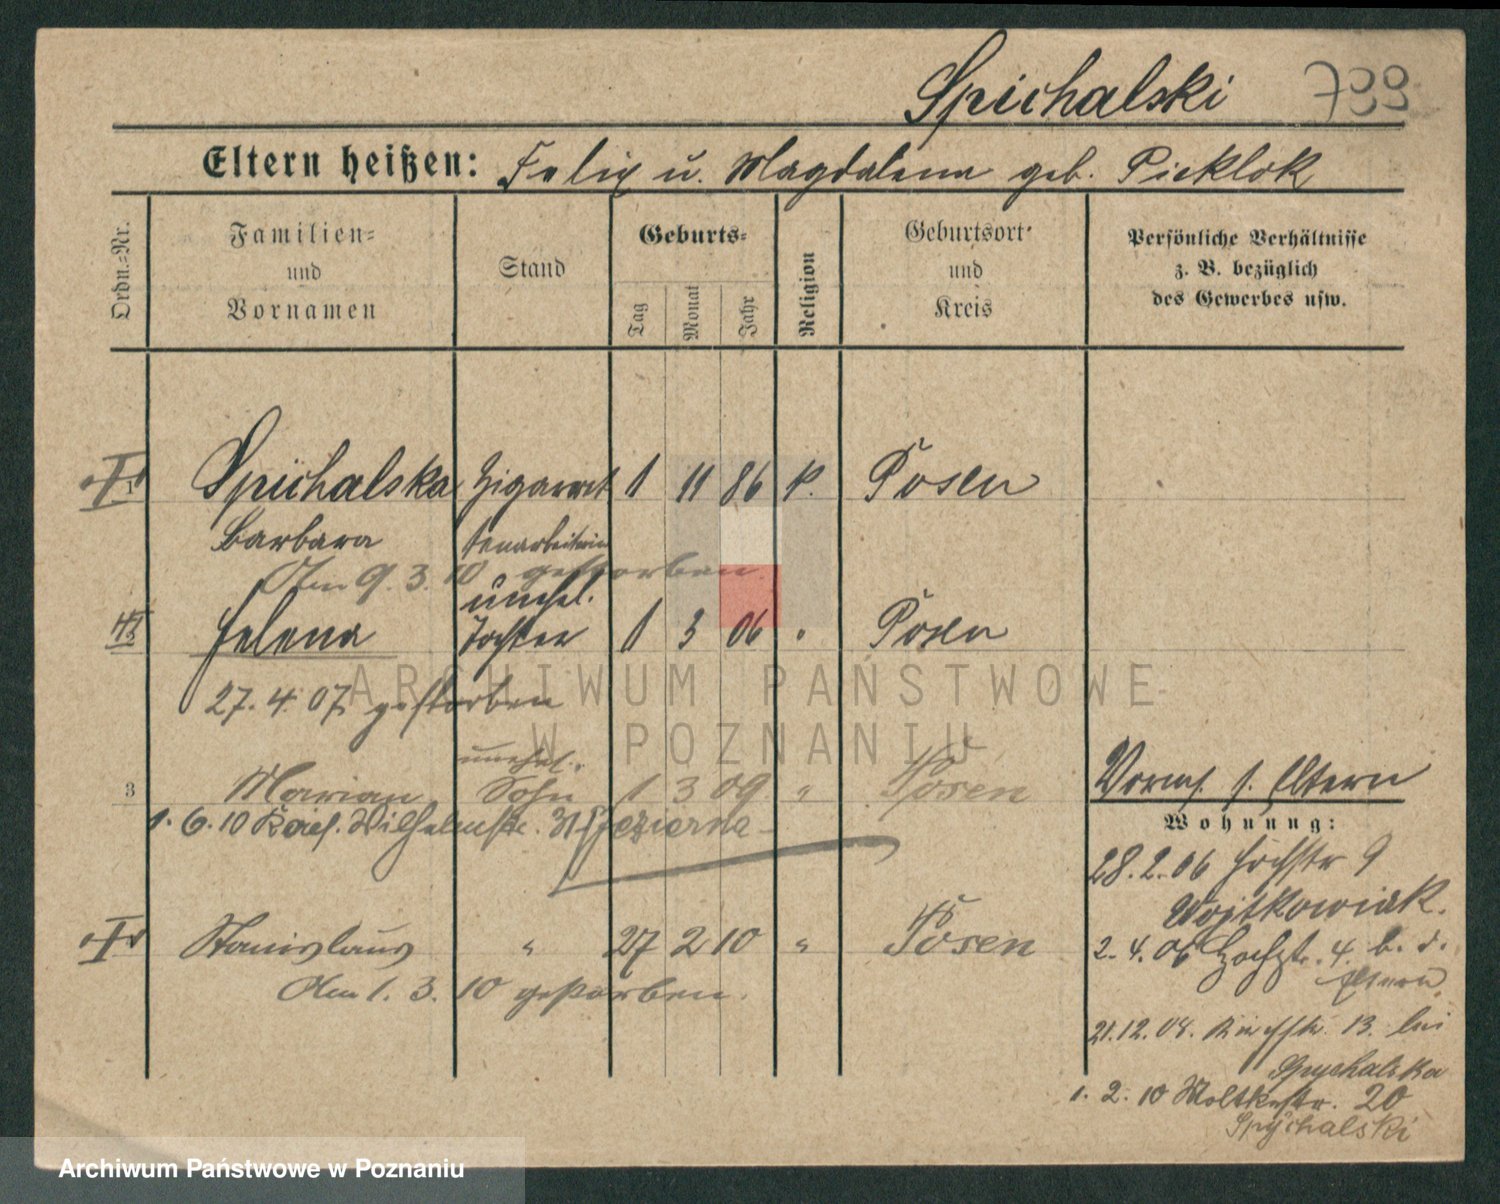 Spichalski 799
Eltern heißen: Felix u. Magdalena geb. Picklok
Ordn.=Nr.
Familien=
und
Vornamen
Stand
Geburts=
Tag
Monat
Jahr
Religion
Geburtsort
und
Kreis
Persönliche Verhältnisse
z. B. bezüglich
des Gewerbes usw.
1 Spichalska Zigarret 1 11 86 k. Posen
Barbara tenarbeiterin
Am 9. 3. 10 gestorben.
unehel.
2 Helena Tochter 1 3 06 " Posen
27. 4. 07 gestorben
unehel.
3 Marian Sohn 1 3 09 " Posen
1. 6. 10 Wilhelmstr. 31 Jezierna
Stanislaus " 27 2 10 " Posen
Am 1. 3. 10 gestorben.
Vorm. s. Eltern
Wohnung:
28. 2. 06 9
Wojtkowiak.
2. 4. 06 4. b. d.
Eltern.
21. 12. 08. 13. bei
Spychalska
1. 2. 10 Moltkestr. 20
Spychalski
ARCHIWUM PAŃSTWOWE
W POZNANIU
Archiwum Państwowe w Poznaniu